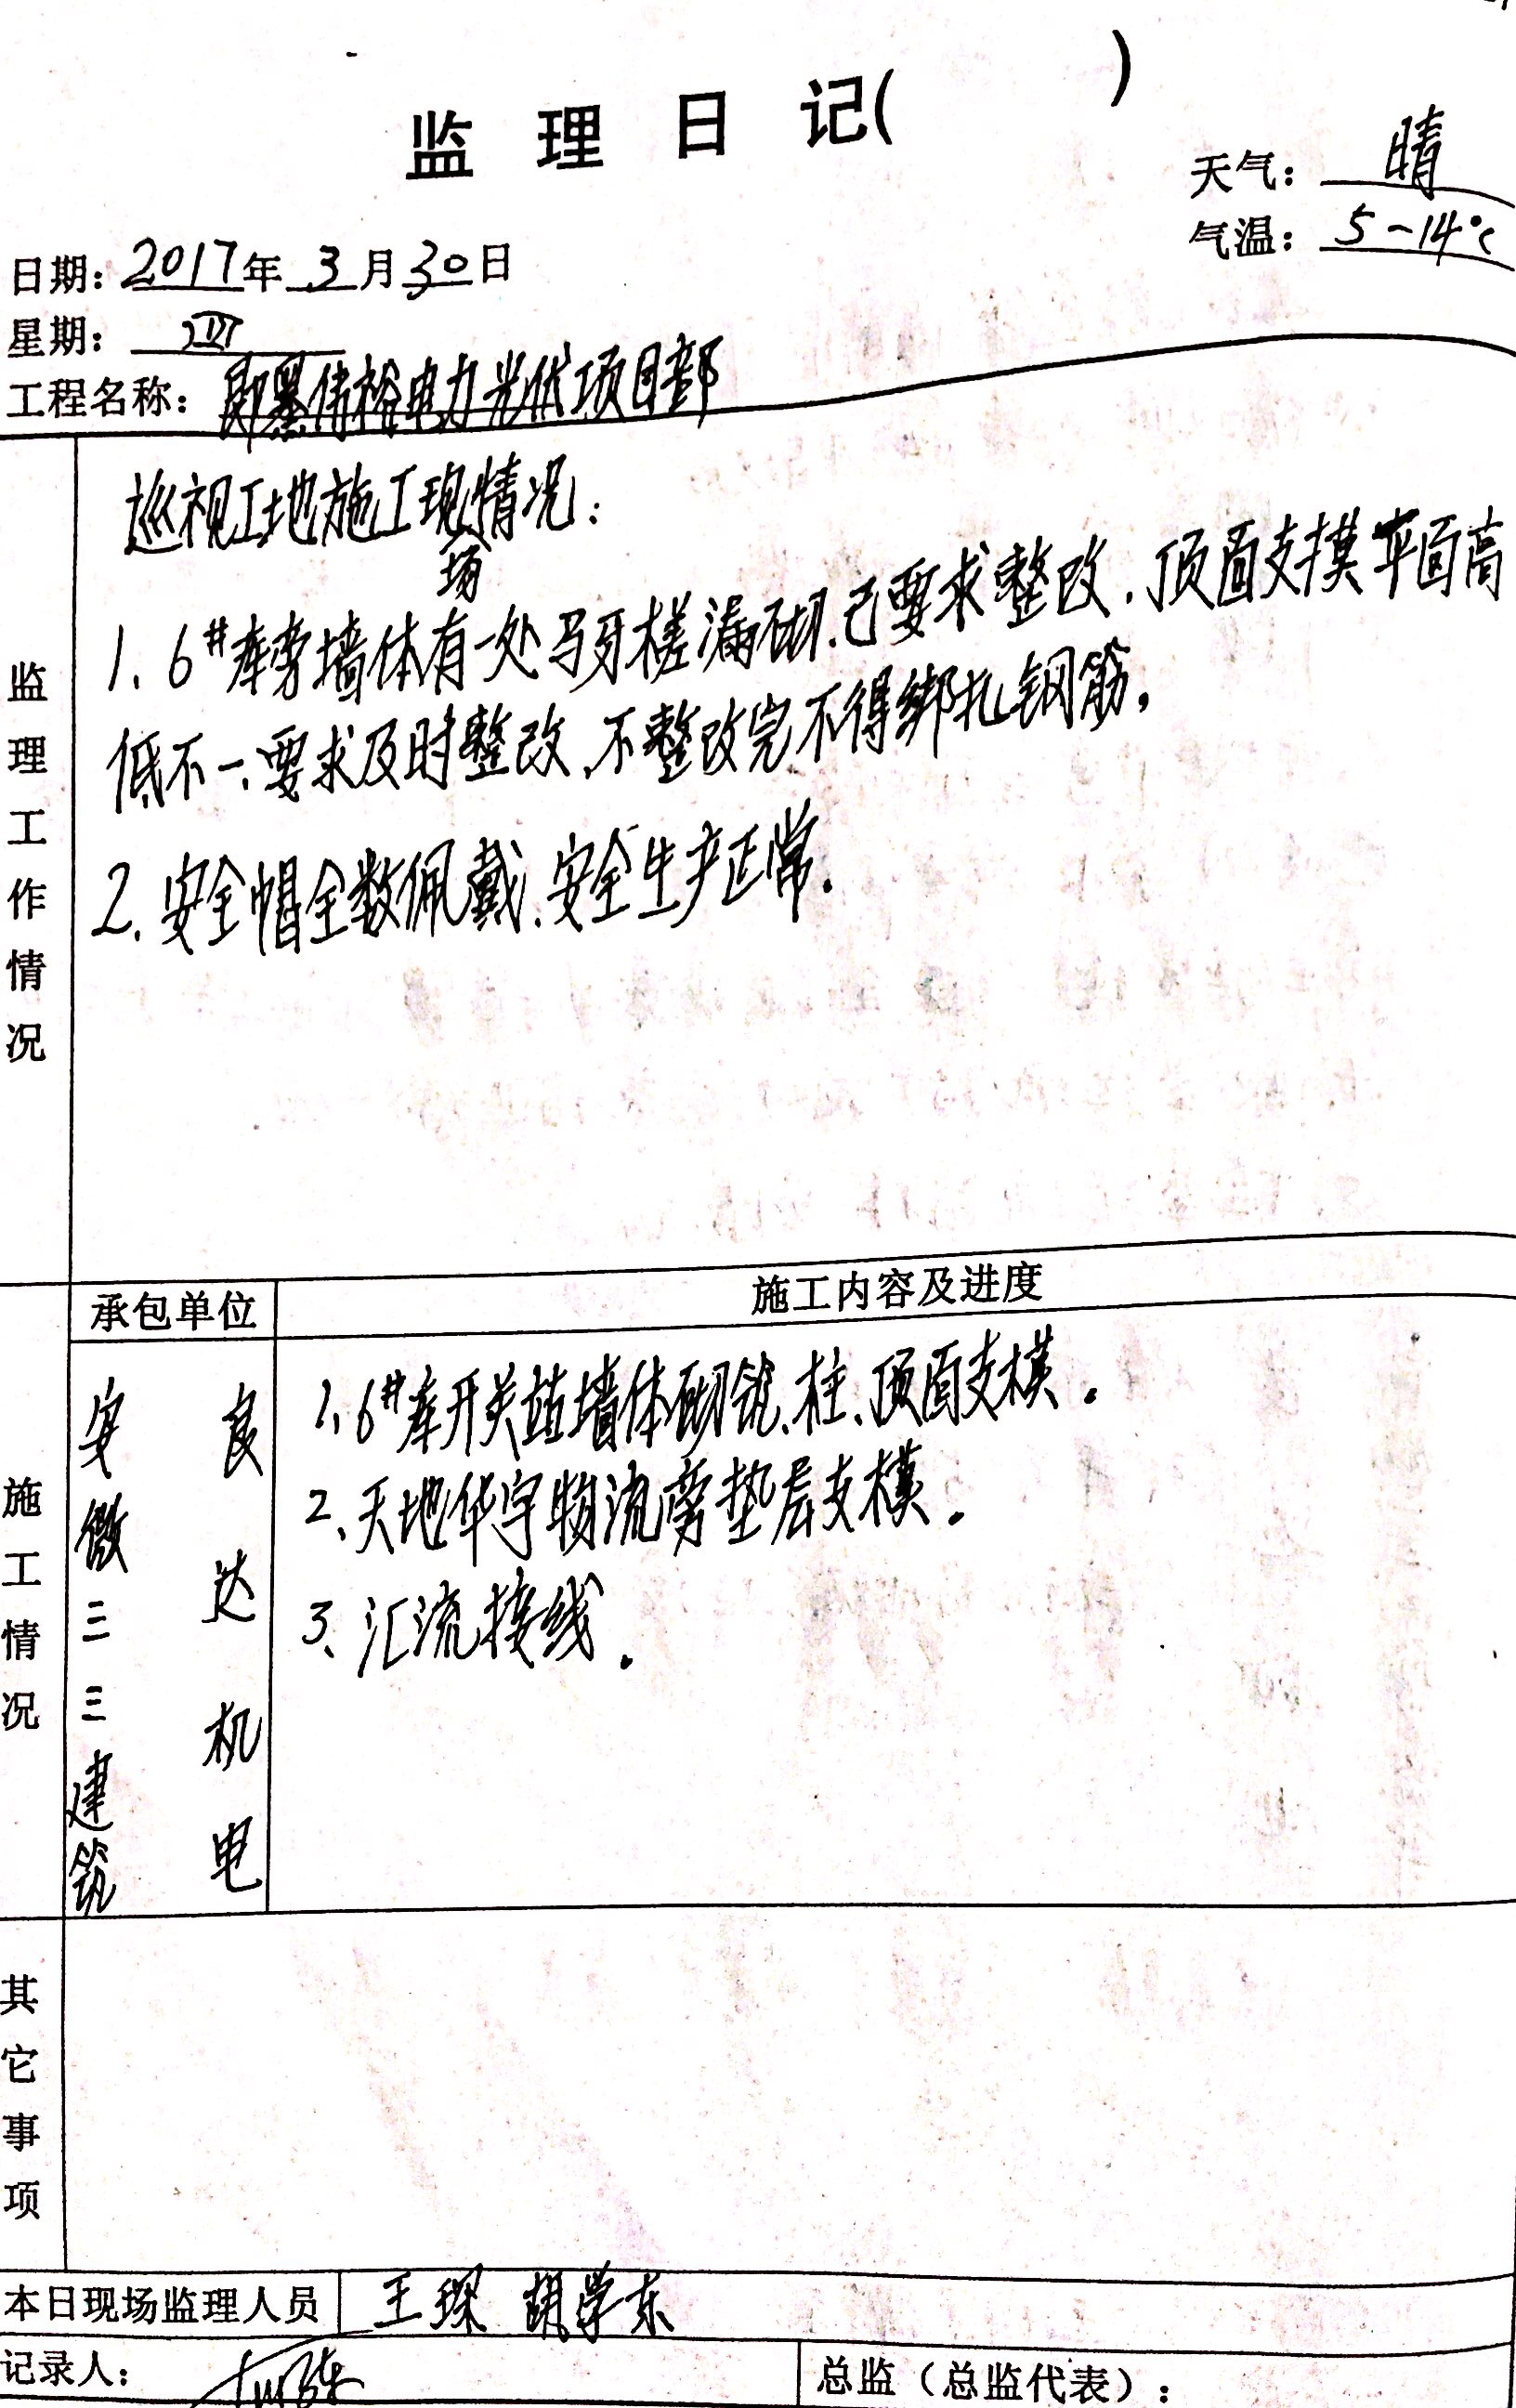 监理日记( )
天气：晴
气温：5-14℃
日期：2017年3月30日
星期：四
工程名称：即墨伟裕电力光伏项目部
监理工作情况
巡视工地施工现场情况：
1、6#库旁墙体有一处马牙槎漏砌.已要求整改.顶面支摸平面高
低不一.要求及时整改.不整改完不得绑扎钢筋,
2.安全帽全数佩戴.安全生产正常.
承包单位
施工内容及进度
施工情况
安徽三三建筑
良达机电
1、6#库开关站墙体砌筑、柱、顶面支模.
2、天地华宇物流旁垫层支模.
3、汇流接线.
其它事项
本日现场监理人员
王琛 胡学东
记录人：
总监（总监代表）：